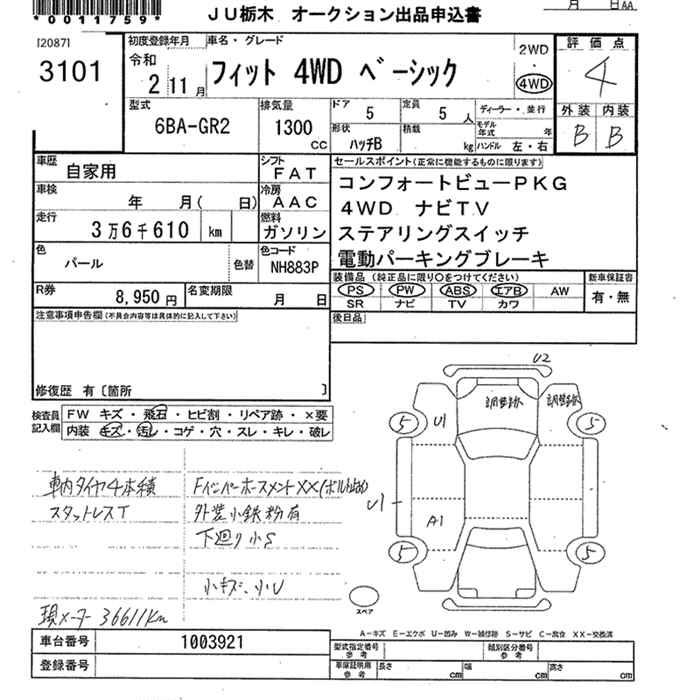 *0011759*
JU栃木 オークション出品申込書
月 日AA
[2087]
3101
初度登録年月
令和
2 11月
車名・グレード
フィット 4WD ベーシック
2WD
4WD
評価点
4
型式
6BA-GR2
排気量
1300
CC
ドア
5
定員
5 人
形状
ハッチB
積載
kg
ディーラー・並行
モデル年式 年
ハンドル 左・右
外装 内装
B B
車歴
自家用
シフト
FAT
車検
年 月( 日)
冷房
AAC
走行
3万6千610 km
燃料
ガソリン
色
パール
色替
色コード
NH883P
R券
8,950円
名変期限
月 日
セールスポイント(正常に機能するものに限ります)
コンフォートビューPKG
4WD ナビTV
ステアリングスイッチ
電動パーキングブレーキ
装備品 (純正品に限り○をつけてください)
PS PW ABS エアB AW
SR ナビ TV カワ
新車保証書
有・無
注意事項申告欄(不具合内容等は具体的に記入して下さい)
後日品
修復歴 有〔箇所 〕
検査員記入欄
FW キズ・飛石・ヒビ割・リペア跡・×要
内装 キズ・汚し・コゲ・穴・スレ・キレ・破レ
車内タイヤ4本積
スタットレスT
FバンパーホースメントXX
外装小鉄粉有
下廻り小S
小キズ、小U
現メーター 36611Km
U2
調整跡
調整跡
U1
5
5
U1
A1
5
5
スペア
A-キズ E-エクボ U-凹み W-補修跡 S-サビ C-腐食 XX-交換済
車台番号
1003921
登録番号
型式指定番号
参考
類別区分番号
参考
車庫証明用
参考
長さ cm
幅 cm
高さ cm